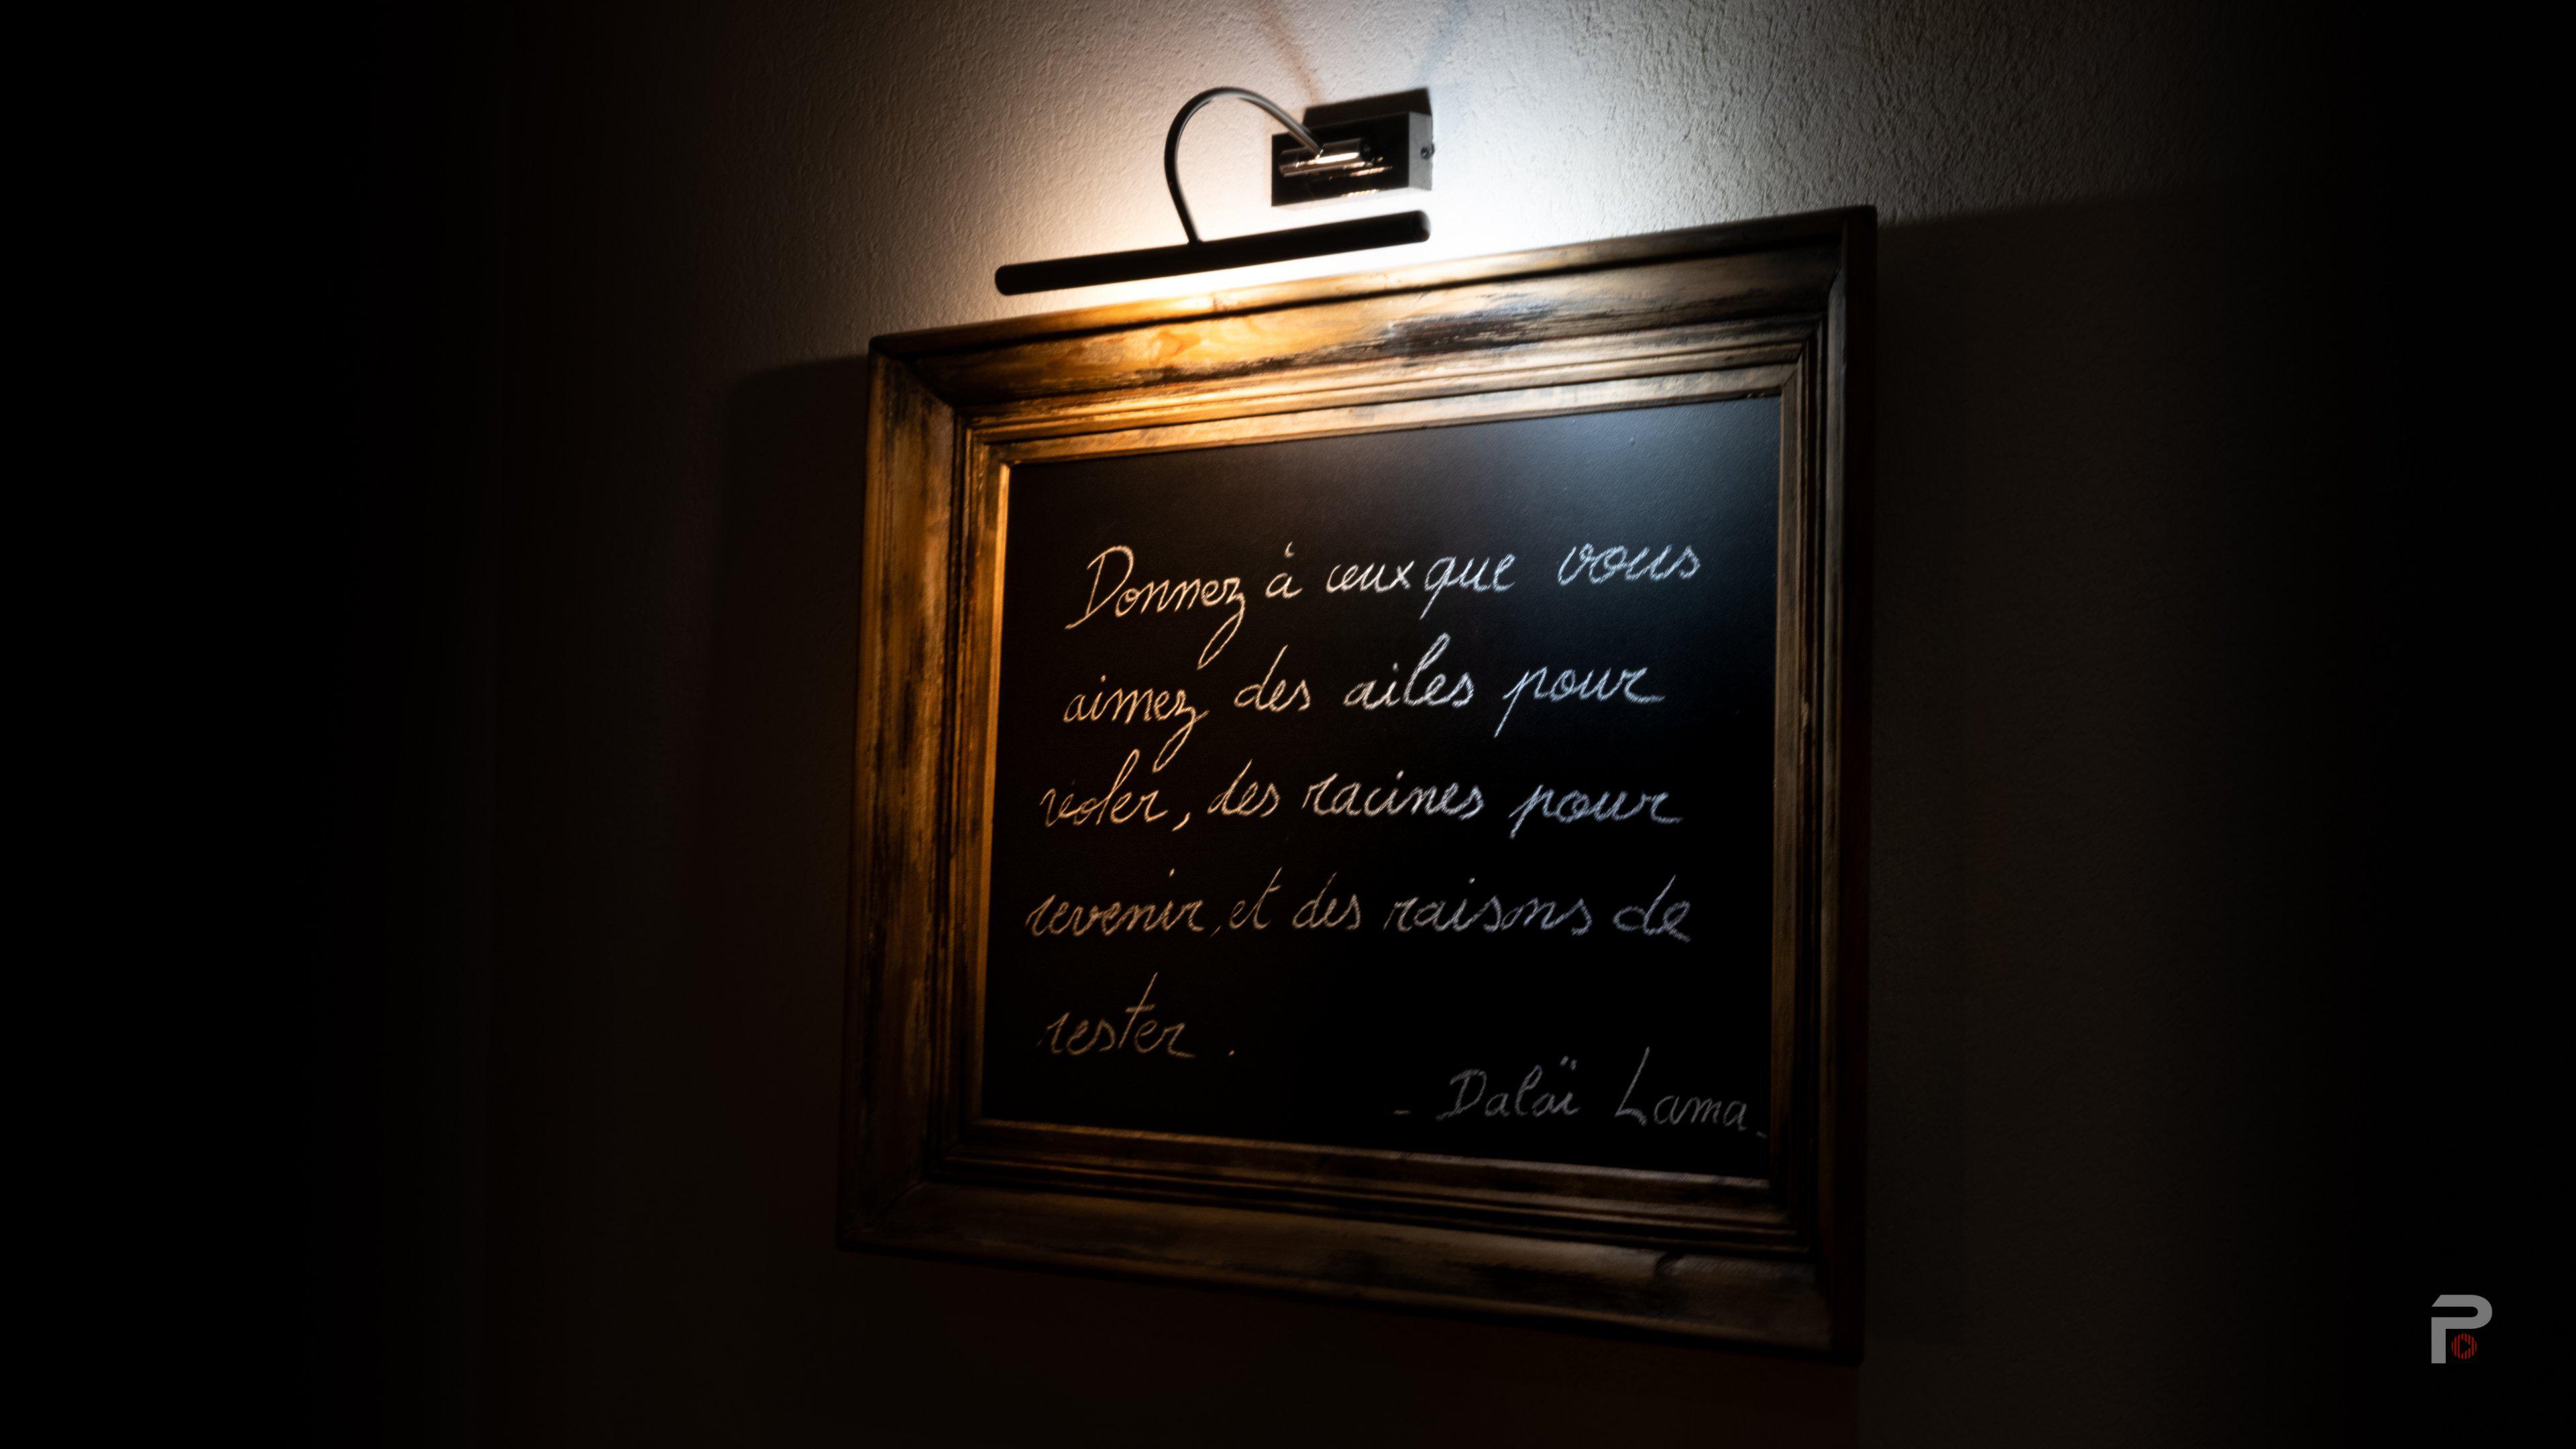 Donnez à ceux que vous
aimez des ailes pour
voler, des racines pour
revenir, et des raisons de
rester.
- Dalaï Lama -
P